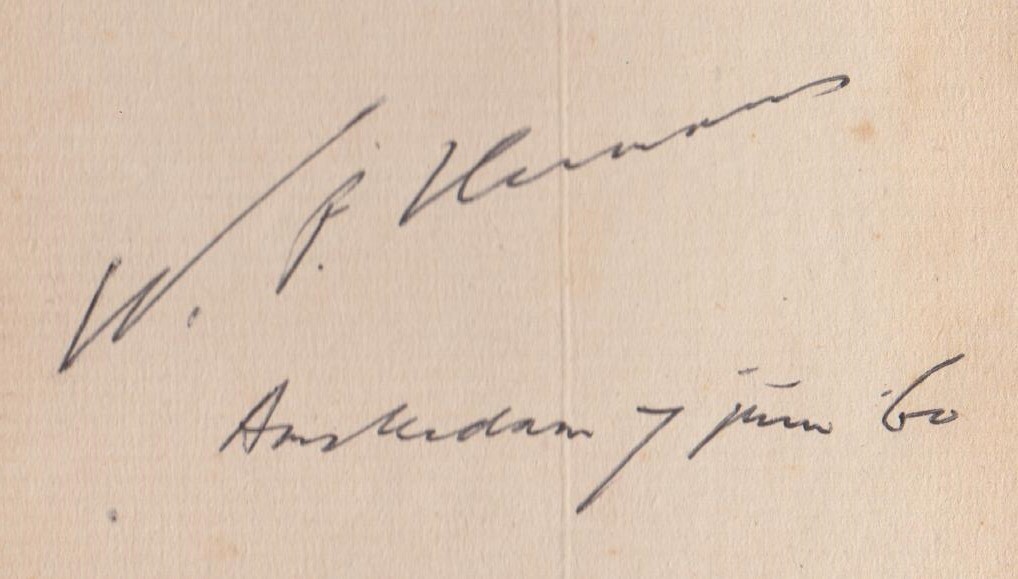 W. F. Hermans
Amsterdam 7 juni '60